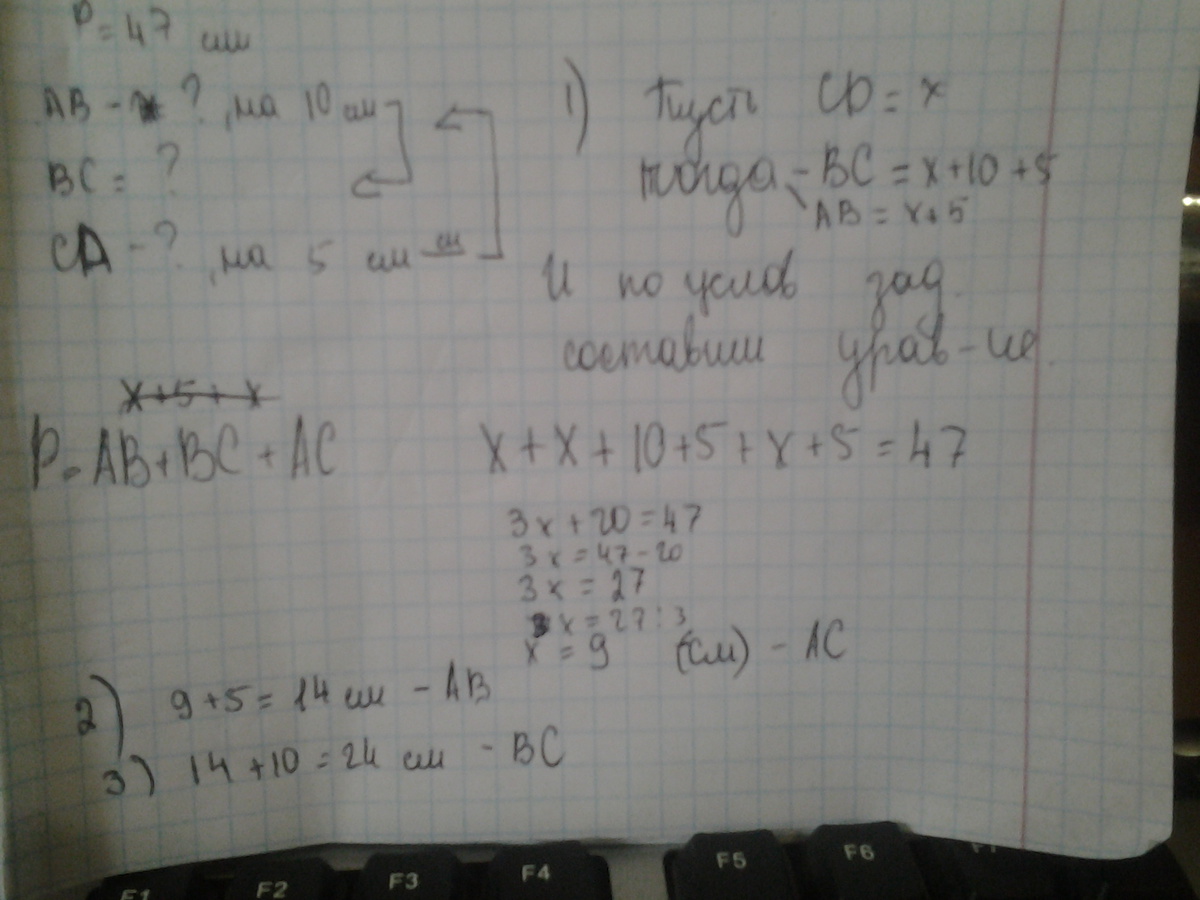 P = 47 см
AB - ? , на 10 см
BC = ?
CD - ? , на 5 см
1) Пусть CD = x
тогда - BC = x+10 +5
AB = x+5
И по услов зад.
составим урав-ие.
x+5+x
P = AB+BC + AC
x + x + 10+5 + x + 5 = 47
3x + 20 = 47
3x = 47 - 20
3x = 27
x = 27 : 3
x = 9 (см) - AC
2) 9 + 5 = 14 см - AB
3) 14 + 10 = 24 см - BC
F1 F2 F3 F4 F5 F6 F7